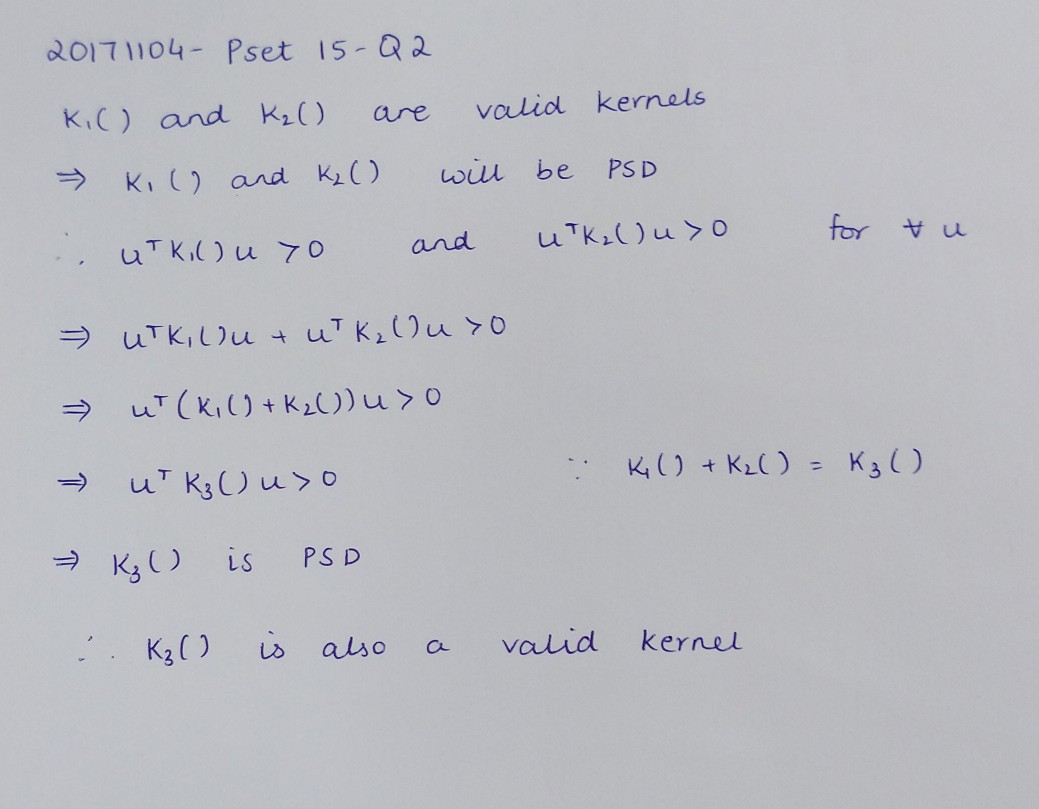 20171104- Pset 15-Q2
K₁() and K₂() are valid kernels
⇒ K₁() and K₂() will be PSD
∴ uᵀK₁()u >0 and uᵀK₂()u>0 for ∀ u
⇒ uᵀK₁()u + uᵀK₂()u >0
⇒ uᵀ(K₁()+K₂())u>0
⇒ uᵀK₃()u>0 ∵ K₁()+K₂() = K₃()
⇒ K₃() is PSD
∴ K₃() is also a valid kernel